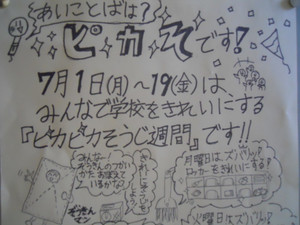 あいことばは?
ピ・カ・そです!
7月1日(月)～19(金)は、
みんなで学校をきれいにする
『ピカピカそうじ週間』です!!
みんなー!
ぞうきんのつかい
かたおぼえて
いるかな?
ぞうきん
マン
月曜日はズバリ!
ロッカーをきれいにする!
火曜日はズバリ!